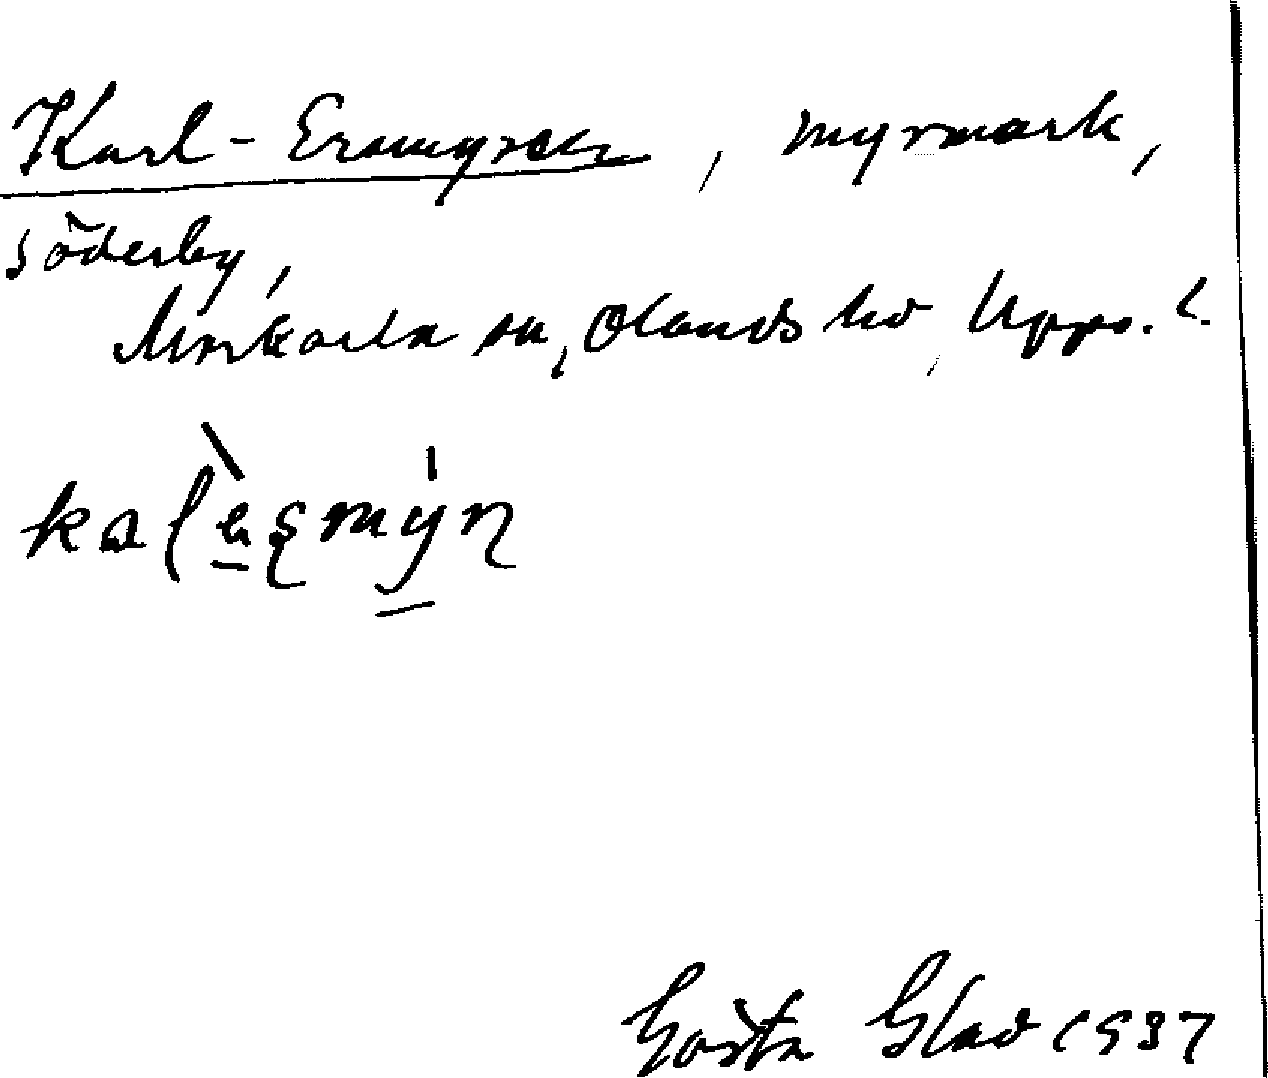 Karl-Ersmyren, myrmark,
Söderby,
Morkarla sn, Olands hd, Upps. l.
Gösta Glad 1937